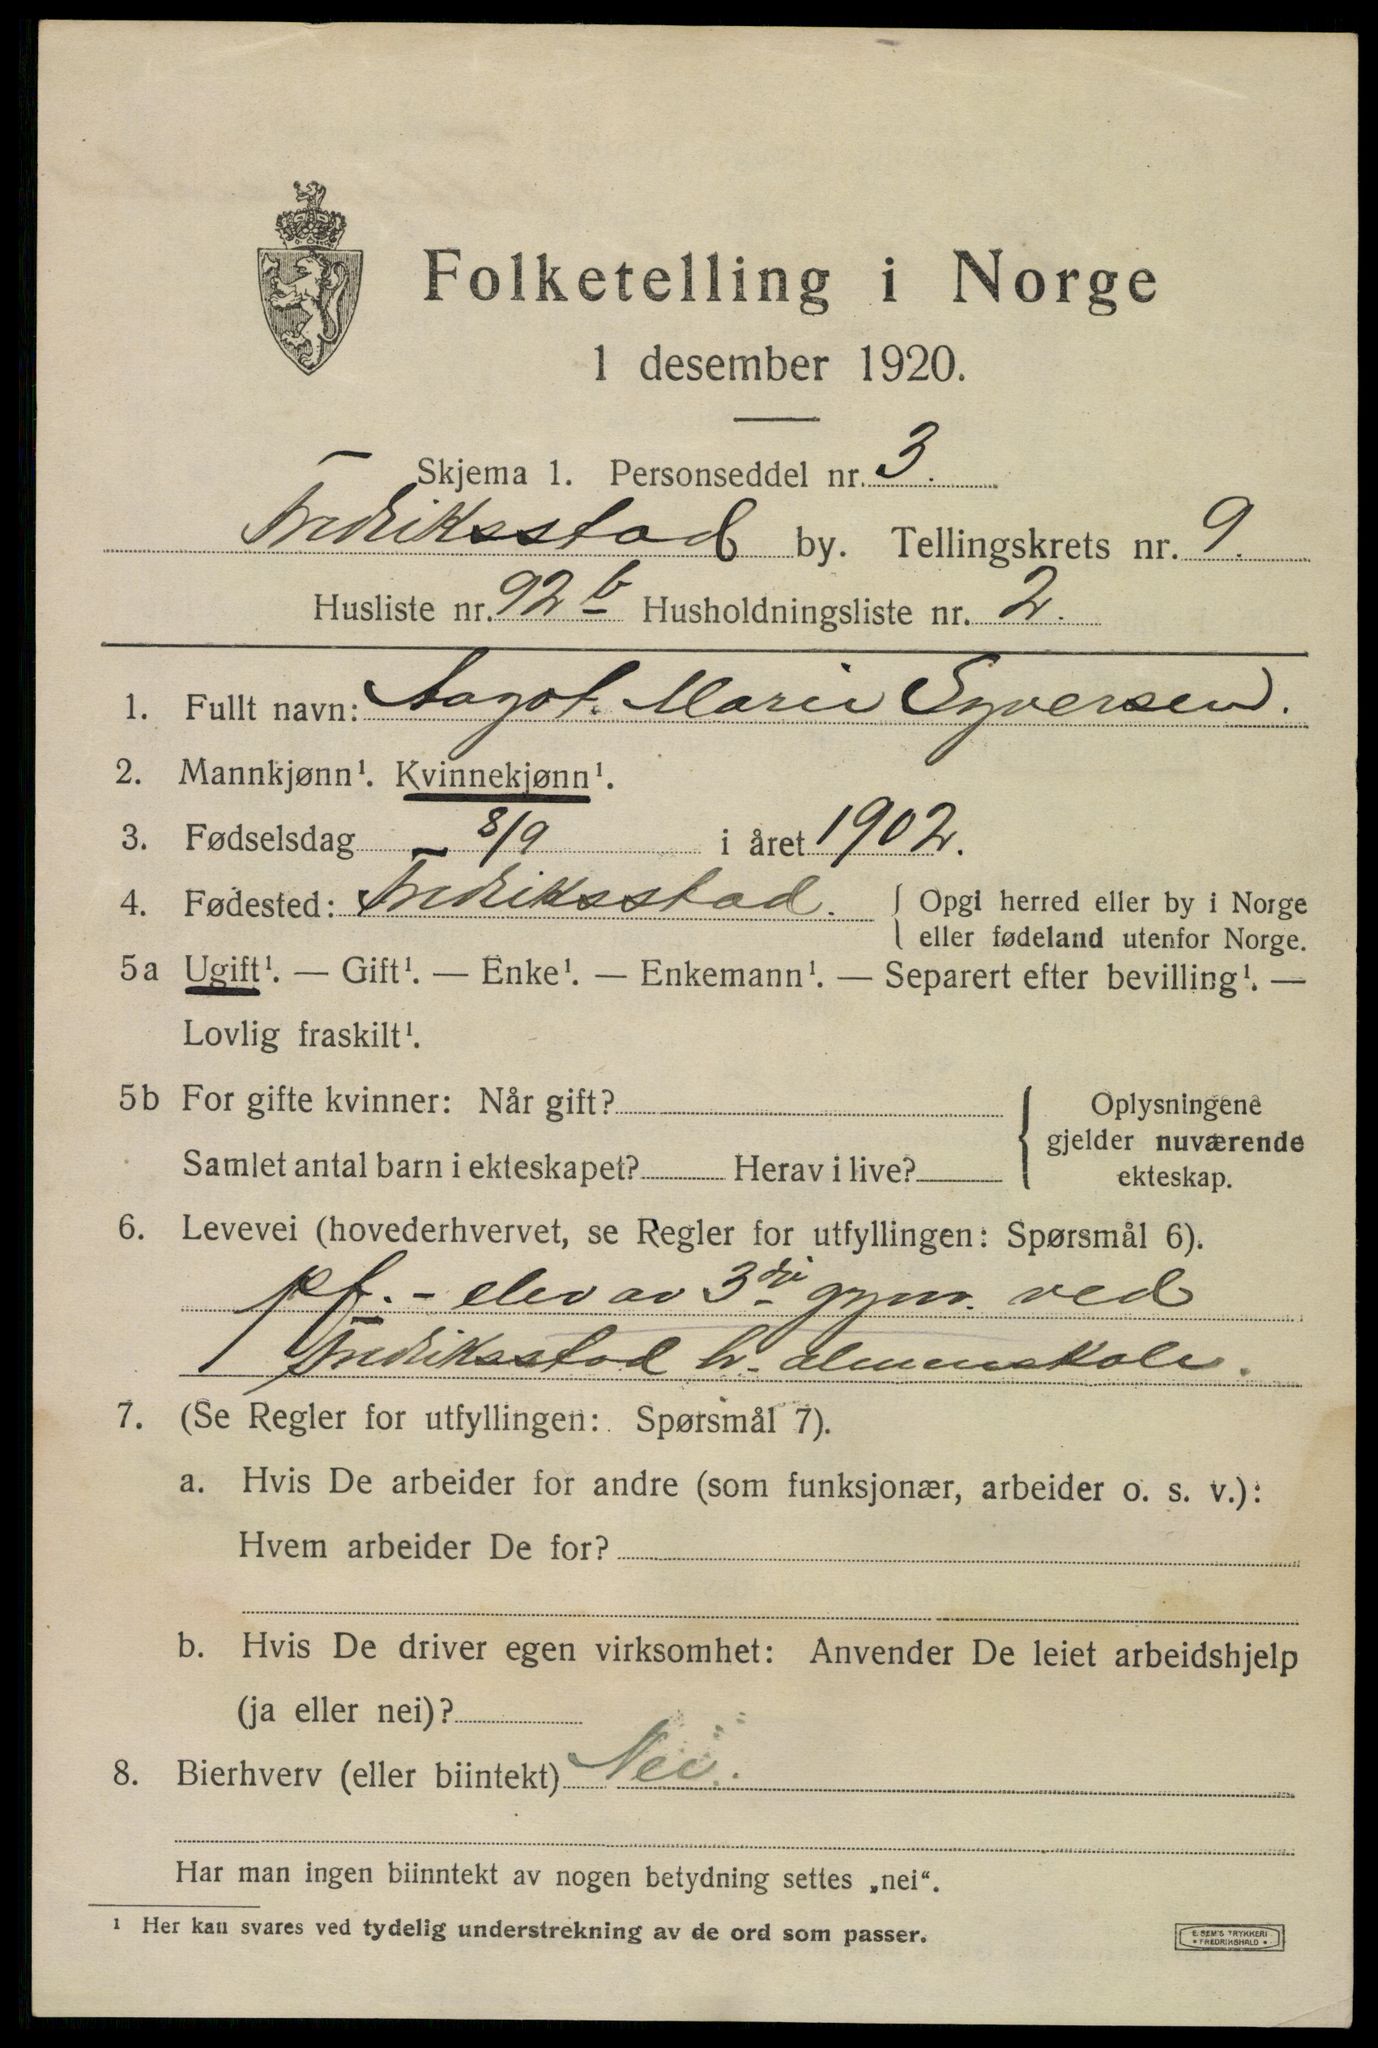 Folketelling i Norge
1 desember 1920.
Skjema 1. Personseddel nr. 3.
Fredriksstad by. Tellingskrets nr. 9.
Husliste nr. 92 b Husholdningsliste nr. 2.
1. Fullt navn: Aagot. Marie Syversen.
2. Mannkjønn¹. Kvinnekjønn¹.
3. Fødselsdag 8/9 i året 1902.
4. Fødested: Fredriksstad. { Opgi herred eller by i Norge
eller fødeland utenfor Norge.
5a Ugift¹. — Gift¹. — Enke¹. — Enkemann¹. — Separert efter bevilling¹. —
Lovlig fraskilt¹.
5b For gifte kvinner: Når gift? { Oplysningene
gjelder nuværende
Samlet antal barn i ekteskapet? Herav i live? ekteskap.
6. Levevei (hovederhvervet, se Regler for utfyllingen: Spørsmål 6).
pf. - elev av 3die gymn. ved
Fredriksstad h. almenskole.
7. (Se Regler for utfyllingen: Spørsmål 7).
a. Hvis De arbeider for andre (som funksjonær, arbeider o. s. v.):
Hvem arbeider De for?
b. Hvis De driver egen virksomhet: Anvender De leiet arbeidshjelp
(ja eller nei)?
8. Bierhverv (eller biintekt) Nei.
Har man ingen biinntekt av nogen betydning settes „nei“.
¹ Her kan svares ved tydelig understrekning av de ord som passer.
E. SEM'S TRYKKERI
• FREDRIKSHALD •